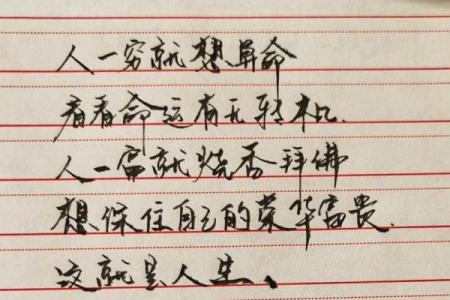 人一穷就想算命
看看命运有无转机.
人一富就烧香拜佛
想保住自己的荣华富贵.
这就是人生、